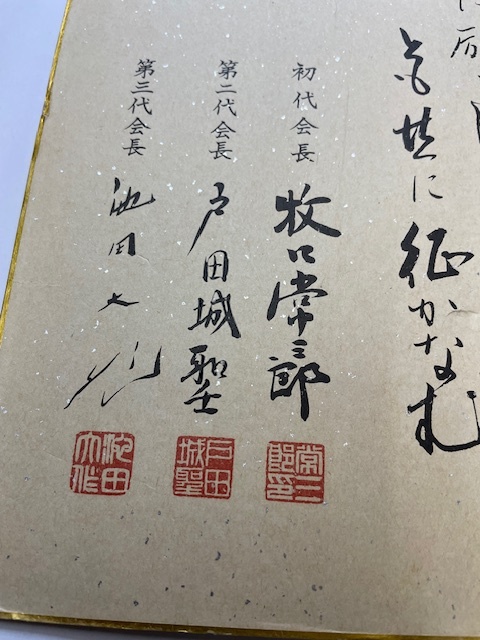 共に征かなむ
初代会長
牧口常三郎
常三郎印
第二代会長
戸田城聖
戸田城聖
第三代会長
池田大作
池田大作